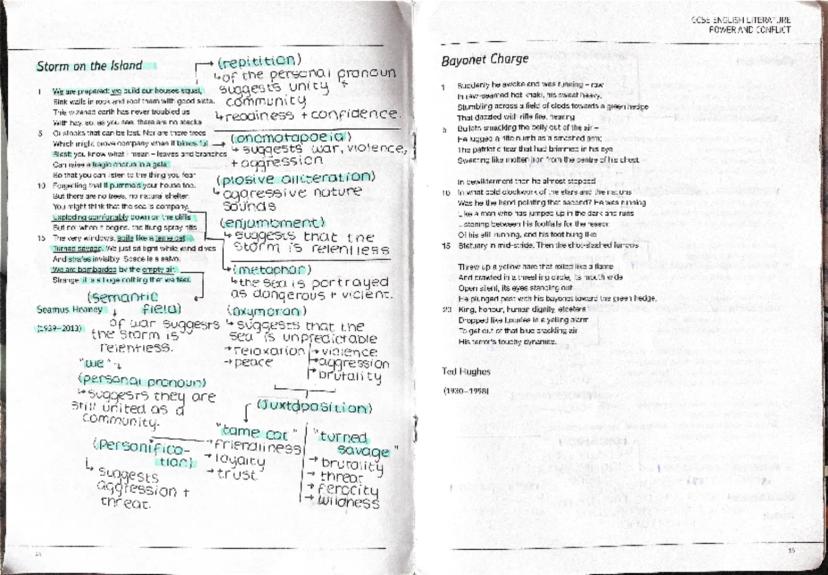 Storm on the Island
1 We are prepared: we build our houses squat,
Sink walls in rock and roof them with good slate.
This wizened earth has never troubled us
With hay, so, as you see, there are no stacks
5 Or stooks that can be lost. Nor are there trees
Which might prove company when it blows full
Blast: you know what I mean - leaves and branches
Can raise a tragic chorus in a gale
So that you can listen to the thing you fear
10 Forgetting that it pummels your house too.
But there are no trees, no natural shelter.
You might think that the sea is company,
Exploding comfortably down on the cliffs
But no: when it begins, the flung spray hits
15 The very windows, spits like a tame cat
Turned savage. We just sit tight while wind dives
And strafes invisibly. Space is a salvo.
We are bombarded by the empty air.
Strange, it is a huge nothing that we fear.
Seamus Heaney
(1939–2013)
(repitition)
↳of the personal pronoun
suggests unity +
community
↳readiness + confidence.
(onomotapoeia)
↳suggests war, violence,
+ aggression
(plosive aliteration)
↳agressive nature
sounds
(enjambment)
↳suggests that the
storm is relentless
(metaphor)
↳the sea is portrayed
as dangerous + violent.
(semantic
field)
of war suggests
the storm is
relentless.
(oxymoron)
↳suggests that the
sea is unpredictable
→relaxation
→peace
→violence
→aggression
→brutality
"we"
(personal pronoun)
↳suggests they are
still united as a
community.
(juxtaposition)
"tame cat"
→friendliness
→loyalty
→trust
"turned
savage"
→brutality
→threat
→ferocity
→wildness
(personifica-
tion)
↳suggests
aggression +
threat.
GCSE ENGLISH LITERATURE
POWER AND CONFLICT
Bayonet Charge
1 Suddenly he awoke and was running – raw
In raw-seamed hot khaki, his sweat heavy,
Stumbling across a field of clods towards a green hedge
That dazzled with rifle fire, hearing
5 Bullets smacking the belly out of the air –
He lugged a rifle numb as a smashed arm;
The patriotic tear that had brimmed in his eye
Sweating like molten iron from the centre of his chest,
In bewilderment then he almost stopped –
10 In what cold clockwork of the stars and the nations
Was he the hand pointing that second? He was running
Like a man who has jumped up in the dark and runs
Listening between his footfalls for the reason
Of his still running, and his foot hung like
15 Statuary in mid-stride. Then the shot-slashed furrows
Threw up a yellow hare that rolled like a flame
And crawled in a threshing circle, its mouth wide
Open silent, its eyes standing out.
He plunged past with his bayonet toward the green hedge,
20 King, honour, human dignity, etcetera
Dropped like luxuries in a yelling alarm
To get out of that blue crackling air
His terror's touchy dynamite.
Ted Hughes
(1930–1998)